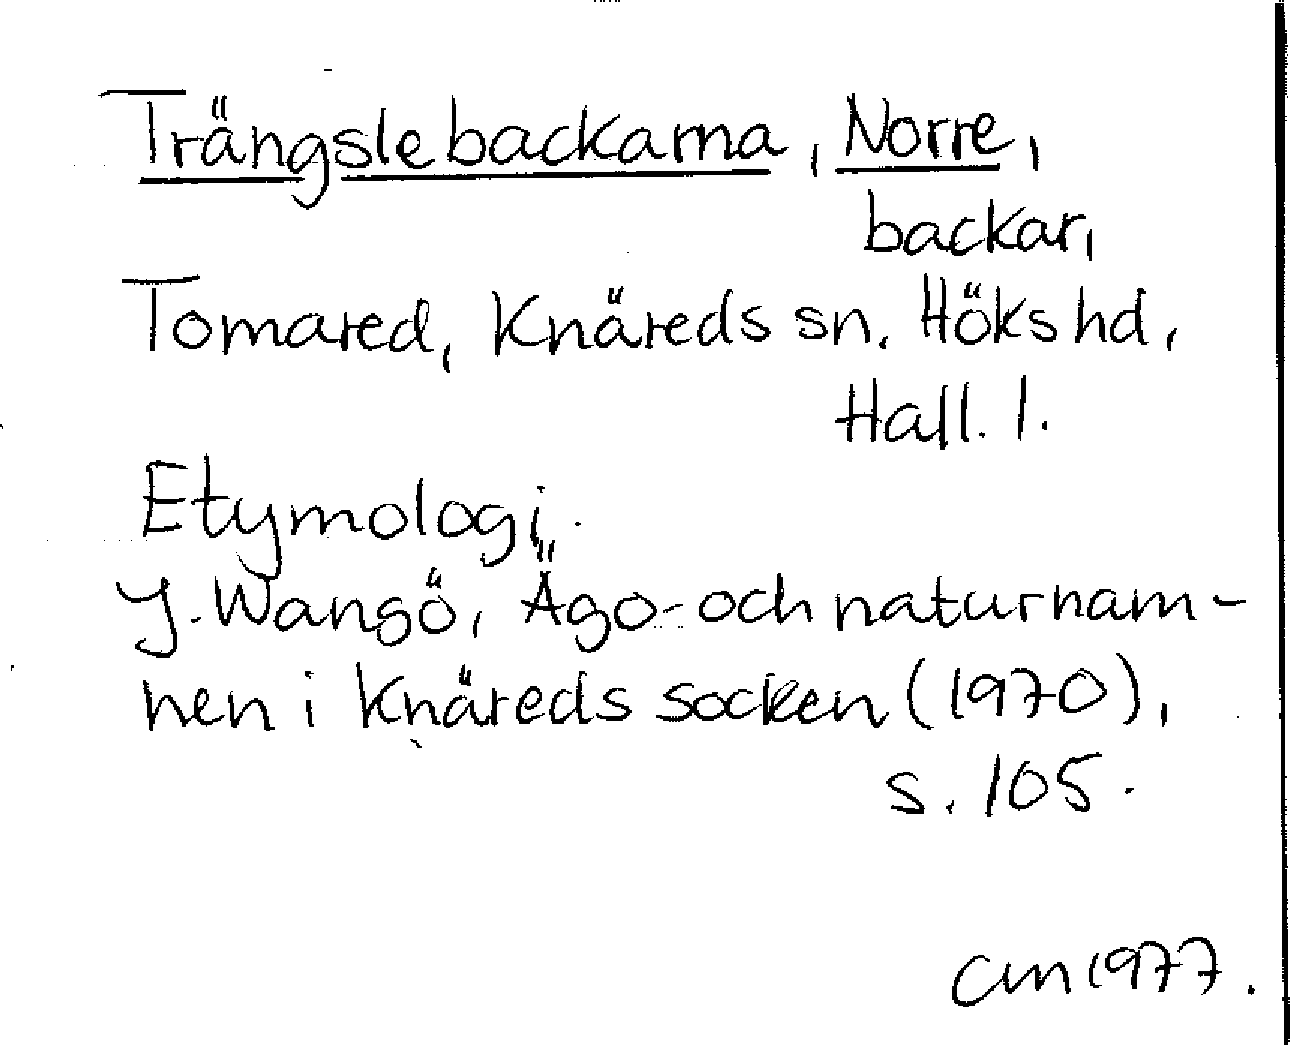 Trängslebackarna, Norre,
backar,
Tomared, Knäreds sn. Höks hd,
Hall. l.
Etymologi.
J. Wangö, Ägo- och naturnam-
nen i Knäreds socken (1970),
s. 105.
CM 1977.